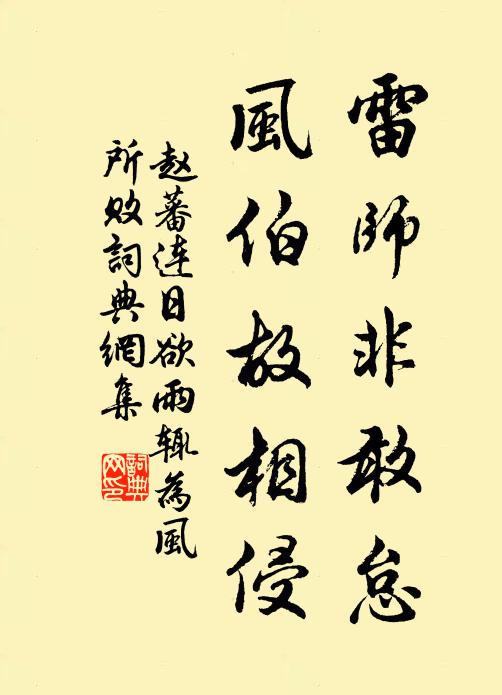 雷師非敢怠
風伯故相侵
赵蕃连日欲雨辄為風
所败詞典網集
詞典
网印